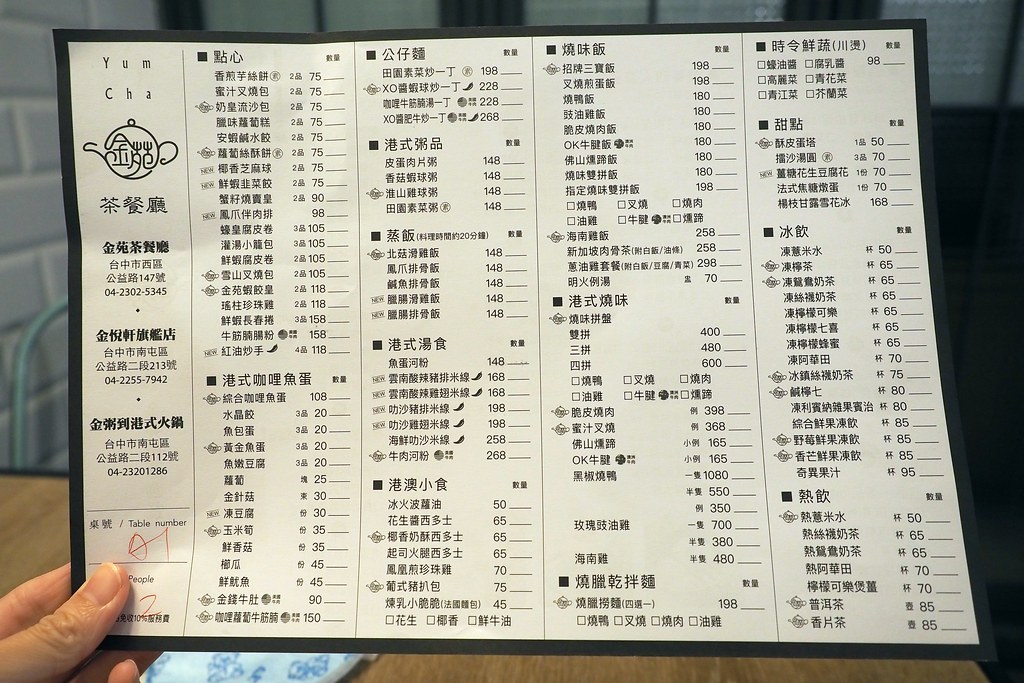 Yum
Cha
金苑
茶餐廳
金苑茶餐廳
台中市西區
公益路147號
04-2302-5345
金悅軒旗艦店
台中市南屯區
公益路二段213號
04-2255-7942
金粥到港式火鍋
台中市南屯區
公益路二段112號
04-23201286
桌號 / Table number
A1
People
2
免收10%服務費
■ 點心 數量
香煎芋絲餅 素 2品 75
蜜汁叉燒包 2品 75
奶皇流沙包 2品 75
臘味蘿蔔糕 2品 75
安蝦鹹水餃 2品 75
蘿蔔絲酥餅 素 2品 75
NEW 椰香芝麻球 2品 75
NEW 鮮蝦韭菜餃 2品 75
蟹籽燒賣皇 2品 90
NEW 鳳爪伴肉排 98
蠔皇腐皮卷 3品 105
灌湯小籠包 3品 105
鮮蝦腐皮卷 3品 105
雪山叉燒包 3品 105
金苑蝦餃皇 2品 118
瑤柱珍珠雞 2品 118
鮮蝦長春捲 3品 158
牛筋腩腸粉 158
NEW 紅油炒手 4品 118
■ 港式咖哩魚蛋 數量
綜合咖哩魚蛋 108
水晶餃 3品 20
魚包蛋 3品 20
黃金魚蛋 3品 20
魚嫩豆腐 3品 20
蘿蔔 塊 25
金針菇 束 30
NEW 凍豆腐 份 30
玉米筍 份 35
鮮香菇 份 35
櫛瓜 份 45
鮮魷魚 份 45
金錢牛肚 90
咖哩蘿蔔牛筋腩 150
■ 公仔麵 數量
田園素菜炒一丁 素 198
XO醬蝦球炒一丁 228
咖哩牛筋腩湯一丁 228
XO醬肥牛炒一丁 268
■ 港式粥品 數量
皮蛋肉片粥 148
香菇蝦球粥 148
淮山雞球粥 148
田園素菜粥 素 148
■ 蒸飯(料理時間約20分鐘) 數量
北菇滑雞飯 148
鳳爪排骨飯 148
鹹魚排骨飯 148
NEW 臘腸滑雞飯 148
NEW 臘腸排骨飯 148
■ 港式湯食 數量
魚蛋河粉 148
NEW 雲南酸辣豬排米線 168
NEW 雲南酸辣雞翅米線 168
NEW 叻沙豬排米線 198
NEW 叻沙雞翅米線 198
海鮮叻沙米線 258
牛肉河粉 268
■ 港澳小食 數量
冰火波蘿油 50
花生醬西多士 65
椰香奶酥西多士 65
起司火腿西多士 65
鳳凰煎珍珠雞 70
葡式豬扒包 75
煉乳小脆脆(法國麵包) 45
□花生 □椰香 □鮮牛油
■ 燒味飯 數量
招牌三寶飯 198
叉燒煎蛋飯 198
燒鴨飯 180
豉油雞飯 180
脆皮燒肉飯 180
OK牛腱飯 180
佛山燻蹄飯 180
燒味雙拼飯 180
指定燒味雙拼飯 198
□燒鴨 □叉燒 □燒肉
□油雞 □牛腱 □燻蹄
海南雞飯 258
新加坡肉骨茶(附白飯/油條) 258
蔥油雞套餐(附白飯/豆腐/青菜) 298
明火例湯 盅 70
■ 港式燒味 數量
燒味拼盤
雙拼 400
三拼 500
四拼 600
□燒鴨 □叉燒 □燒肉
□油雞 □牛腱 □燻蹄
脆皮燒肉 例 398
蜜汁叉燒 例 368
佛山燻蹄 小例 165
OK牛腱 小例 165
黑椒燒鴨 一隻 1080
半隻 550
例 350
玫瑰豉油雞 一隻 700
半隻 380
海南雞 半隻 480
■ 燒臘乾拌麵 數量
燒臘撈麵(四選一) 198
□燒鴨 □叉燒 □燒肉 □油雞
■ 時令鮮蔬(川燙) 數量
□蠔油醬 □腐乳醬 98
□高麗菜 □青花菜
□青江菜 □芥蘭菜
■ 甜點 數量
酥皮蛋塔 1品 50
擂沙湯圓 素 3品 70
NEW 薑糖花生豆腐花 1份 70
法式焦糖燉蛋 1份 70
楊枝甘露雪花冰 168
■ 冰飲 數量
凍薏米水 杯 50
凍檸茶 杯 65
凍鴛鴦奶茶 杯 65
凍絲襪奶茶 杯 65
凍檸檬可樂 杯 65
凍檸檬七喜 杯 65
凍檸檬蜂蜜 杯 65
凍阿華田 杯 70
冰鎮絲襪奶茶 杯 75
鹹檸七 杯 80
凍利賓納雜果賓治 杯 80
綜合鮮果凍飲 杯 85
野莓鮮果凍飲 杯 85
香芒鮮果凍飲 杯 85
奇異果汁 杯 95
■ 熱飲 數量
熱薏米水 杯 50
熱絲襪奶茶 杯 65
熱鴛鴦奶茶 杯 65
熱阿華田 杯 70
檸檬可樂煲薑 杯 70
普洱茶 壺 85
香片茶 壺 85